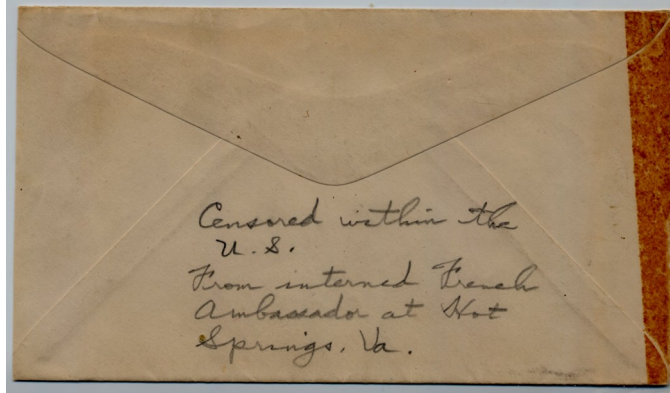 Censored within the
U. S.
From interned French
Ambassador at Hot
Springs, Va.